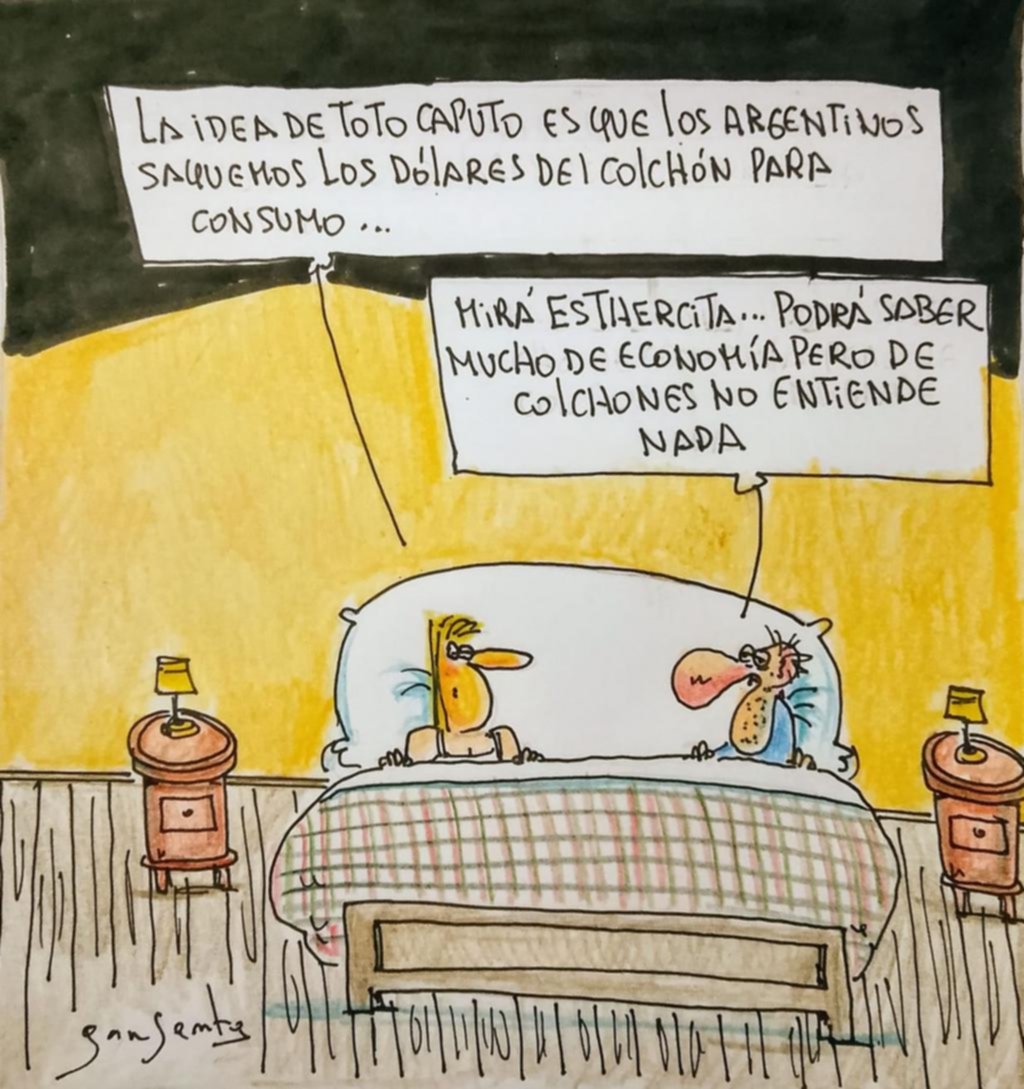 LA iDEA DE TOTO CAPUTO ES QUE los ARGENTINOS
SAQUEMOS LOS DÓlARES DEl COlCHÓN PARA
CONSUMO...
MiRÁ ESTHERCiTA... PODRÁ SABER
MUCHO DE ECONOMÍA PERO DE
COlCHONES NO ENTiENDE
NADA